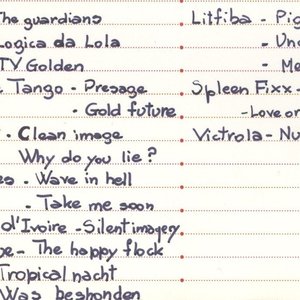 The guardians
Logica da Lola
TV Golden
Tango - Presage
- Gold future
. - Clean image
Why do you lie?
- Wave in hell
- Take me soon
d'Ivoire - Silent imagery
- The happy flock
Tropical nacht
Was beshonden
Litfiba - Pig
- Und
- Me
Spleen Fixx -
- Love or
Victrola - Nu